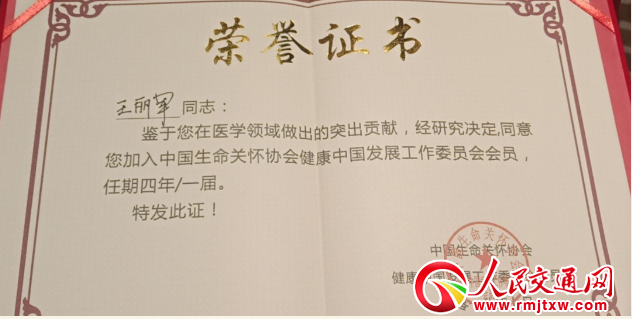 荣誉证书
王丽军 同志：
鉴于您在医学领域做出的突出贡献，经研究决定,同意
您加入中国生命关怀协会健康中国发展工作委员会会员，
任期四年/一届。
特发此证！
中国生命关怀协会
健康中国发展工作委
人民交通网
www.rmjtxw.com